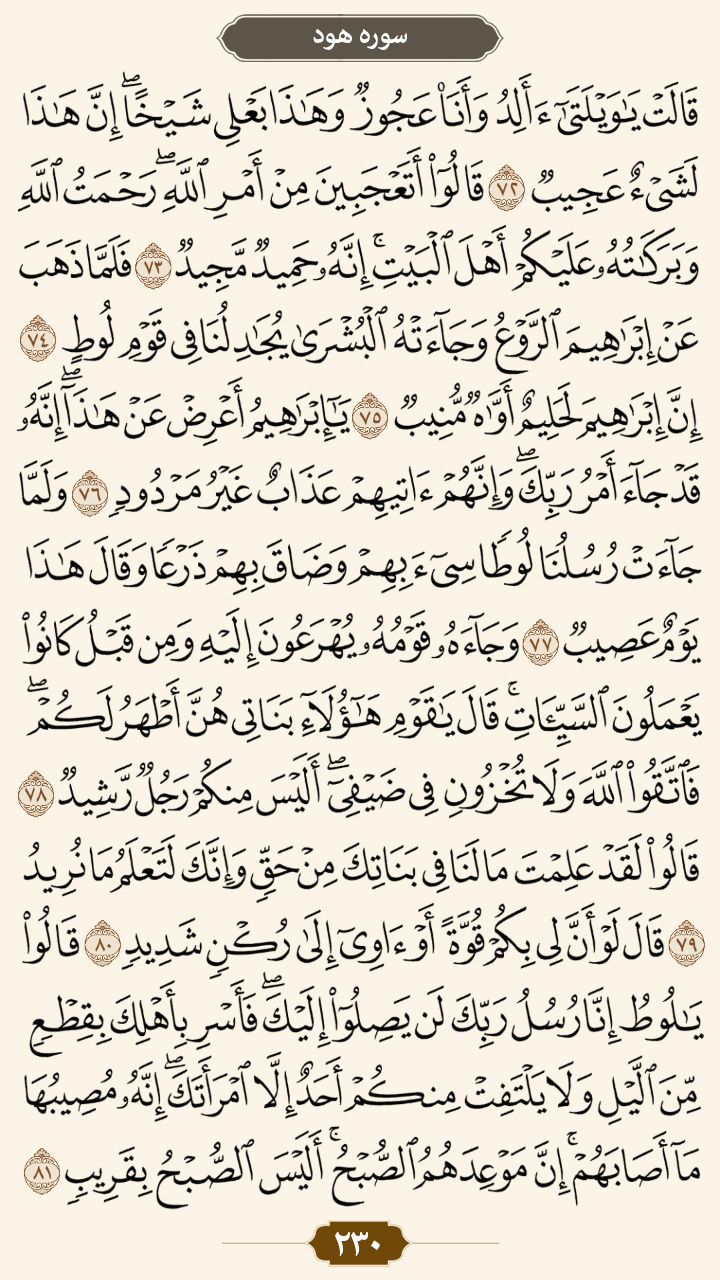 سوره هود
قَالَتْ يَـٰوَيْلَتَىٰٓ ءَأَلِدُ وَأَنَا۠ عَجُوزٌ وَهَـٰذَا بَعْلِى شَيْخًا ۖ إِنَّ هَـٰذَا
لَشَىْءٌ عَجِيبٌ ٧٢ قَالُوٓا۟ أَتَعْجَبِينَ مِنْ أَمْرِ ٱللَّهِ ۖ رَحْمَتُ ٱللَّهِ
وَبَرَكَـٰتُهُۥ عَلَيْكُمْ أَهْلَ ٱلْبَيْتِ ۚ إِنَّهُۥ حَمِيدٌ مَّجِيدٌ ٧٣ فَلَمَّا ذَهَبَ
عَنْ إِبْرَٰهِيمَ ٱلرَّوْعُ وَجَآءَتْهُ ٱلْبُشْرَىٰ يُجَـٰدِلُنَا فِى قَوْمِ لُوطٍ ٧٤
إِنَّ إِبْرَٰهِيمَ لَحَلِيمٌ أَوَّٰهٌ مُّنِيبٌ ٧٥ يَـٰٓإِبْرَٰهِيمُ أَعْرِضْ عَنْ هَـٰذَآ ۖ إِنَّهُۥ
قَدْ جَآءَ أَمْرُ رَبِّكَ ۖ وَإِنَّهُمْ ءَاتِيهِمْ عَذَابٌ غَيْرُ مَرْدُودٍ ٧٦ وَلَمَّا
جَآءَتْ رُسُلُنَا لُوطًا سِىٓءَ بِهِمْ وَضَاقَ بِهِمْ ذَرْعًا وَقَالَ هَـٰذَا
يَوْمٌ عَصِيبٌ ٧٧ وَجَآءَهُۥ قَوْمُهُۥ يُهْرَعُونَ إِلَيْهِ وَمِن قَبْلُ كَانُوا۟
يَعْمَلُونَ ٱلسَّيِّـَٔاتِ ۚ قَالَ يَـٰقَوْمِ هَـٰٓؤُلَآءِ بَنَاتِى هُنَّ أَطْهَرُ لَكُمْ ۖ
فَٱتَّقُوا۟ ٱللَّهَ وَلَا تُخْزُونِ فِى ضَيْفِىٓ ۖ أَلَيْسَ مِنكُمْ رَجُلٌ رَّشِيدٌ ٧٨
قَالُوا۟ لَقَدْ عَلِمْتَ مَا لَنَا فِى بَنَاتِكَ مِنْ حَقٍّ وَإِنَّكَ لَتَعْلَمُ مَا نُرِيدُ
٧٩ قَالَ لَوْ أَنَّ لِى بِكُمْ قُوَّةً أَوْ ءَاوِىٓ إِلَىٰ رُكْنٍ شَدِيدٍ ٨٠ قَالُوا۟
يَـٰلُوطُ إِنَّا رُسُلُ رَبِّكَ لَن يَصِلُوٓا۟ إِلَيْكَ ۖ فَأَسْرِ بِأَهْلِكَ بِقِطْعٍ
مِّنَ ٱلَّيْلِ وَلَا يَلْتَفِتْ مِنكُمْ أَحَدٌ إِلَّا ٱمْرَأَتَكَ ۖ إِنَّهُۥ مُصِيبُهَا
مَآ أَصَابَهُمْ ۚ إِنَّ مَوْعِدَهُمُ ٱلصُّبْحُ ۚ أَلَيْسَ ٱلصُّبْحُ بِقَرِيبٍ ٨١
٢٣٠